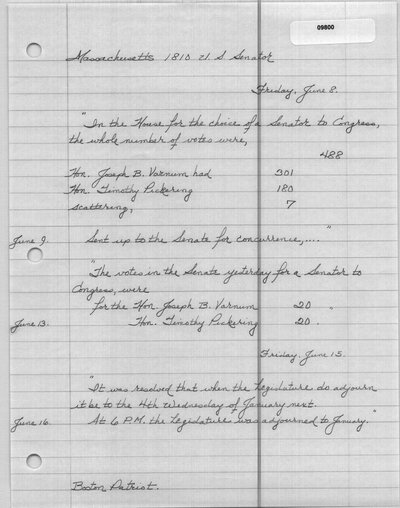 09800
Massachusetts 1810 U. S Senator
Friday, June 8.
"In the House for the choice of a Senator to Congress,
the whole number of votes were,
488
Hon. Joseph B. Varnum had 301
Hon. Timothy Pickering 180
scattering, 7
June 9. Sent up to the Senate for concurrence,...."
"The votes in the Senate yesterday for a Senator to
Congress, were
for the Hon. Joseph B. Varnum 20 "
June 13. Hon. Timothy Pickering 20.
Friday, June 15.
"It was resolved that when the Legislature do adjourn
it be to the 4th Wednesday of January next.
June 16. At 6 P.M. the Legislature was adjourned to January."
Boston Patriot.